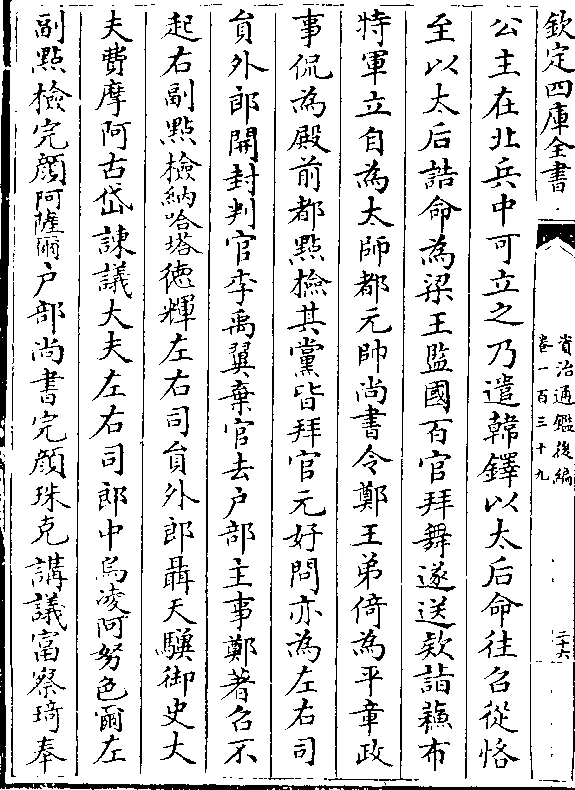 欽定四庫全書
資治通鑑後編
卷一百三十九
二十六
公主在北兵中可立之乃遣韓鐸以太后命往召從恪
至以太后誥命為梁王監國百官拜舞遂送欵詣蘓布
特軍立自為太師都元帥尚書令鄭王弟倚為平章政
事侃為殿前都點檢其黨皆拜官元好問亦為左右司
貟外郎開封判官李禹翼棄官去户部主事鄭著召不
起右副點檢納哈塔徳輝左右司貟外郎聶天驥御史大
夫費摩阿古岱諫議大夫左右司郎中烏凌阿努色爾左
副點檢完顔阿薩爾户部尚書完顔珠克講議富察琦奉